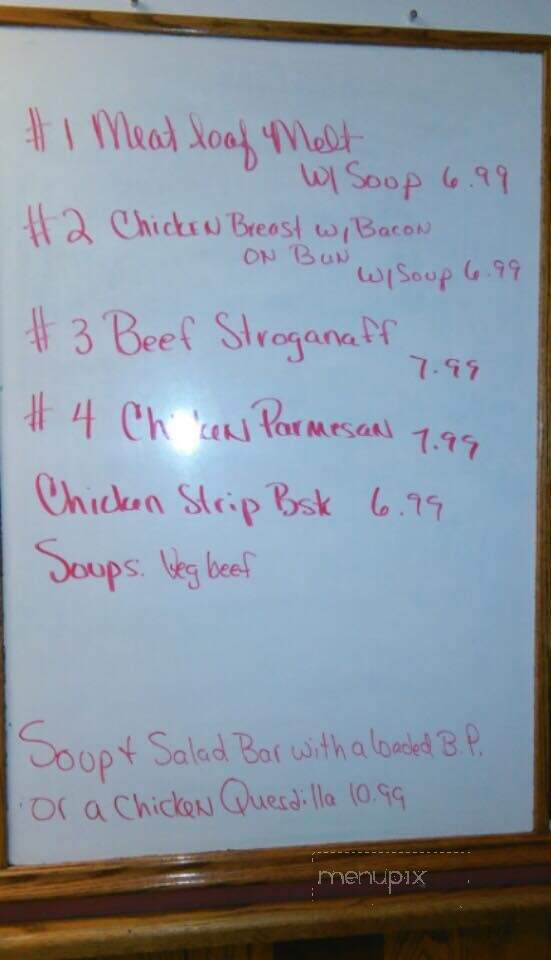 #1 Meat loaf Melt
W/ Soup 6.99
#2 Chicken Breast w/ Bacon
on Bun
W/ Soup 6.99
#3 Beef Stroganaff
7.99
#4 Chicken Parmesan 7.99
Chicken Strip Bsk 6.99
Soups. Veg beef
Soup + Salad Bar with a loaded B.P.
or a Chicken Quesdilla 10.99
menupix